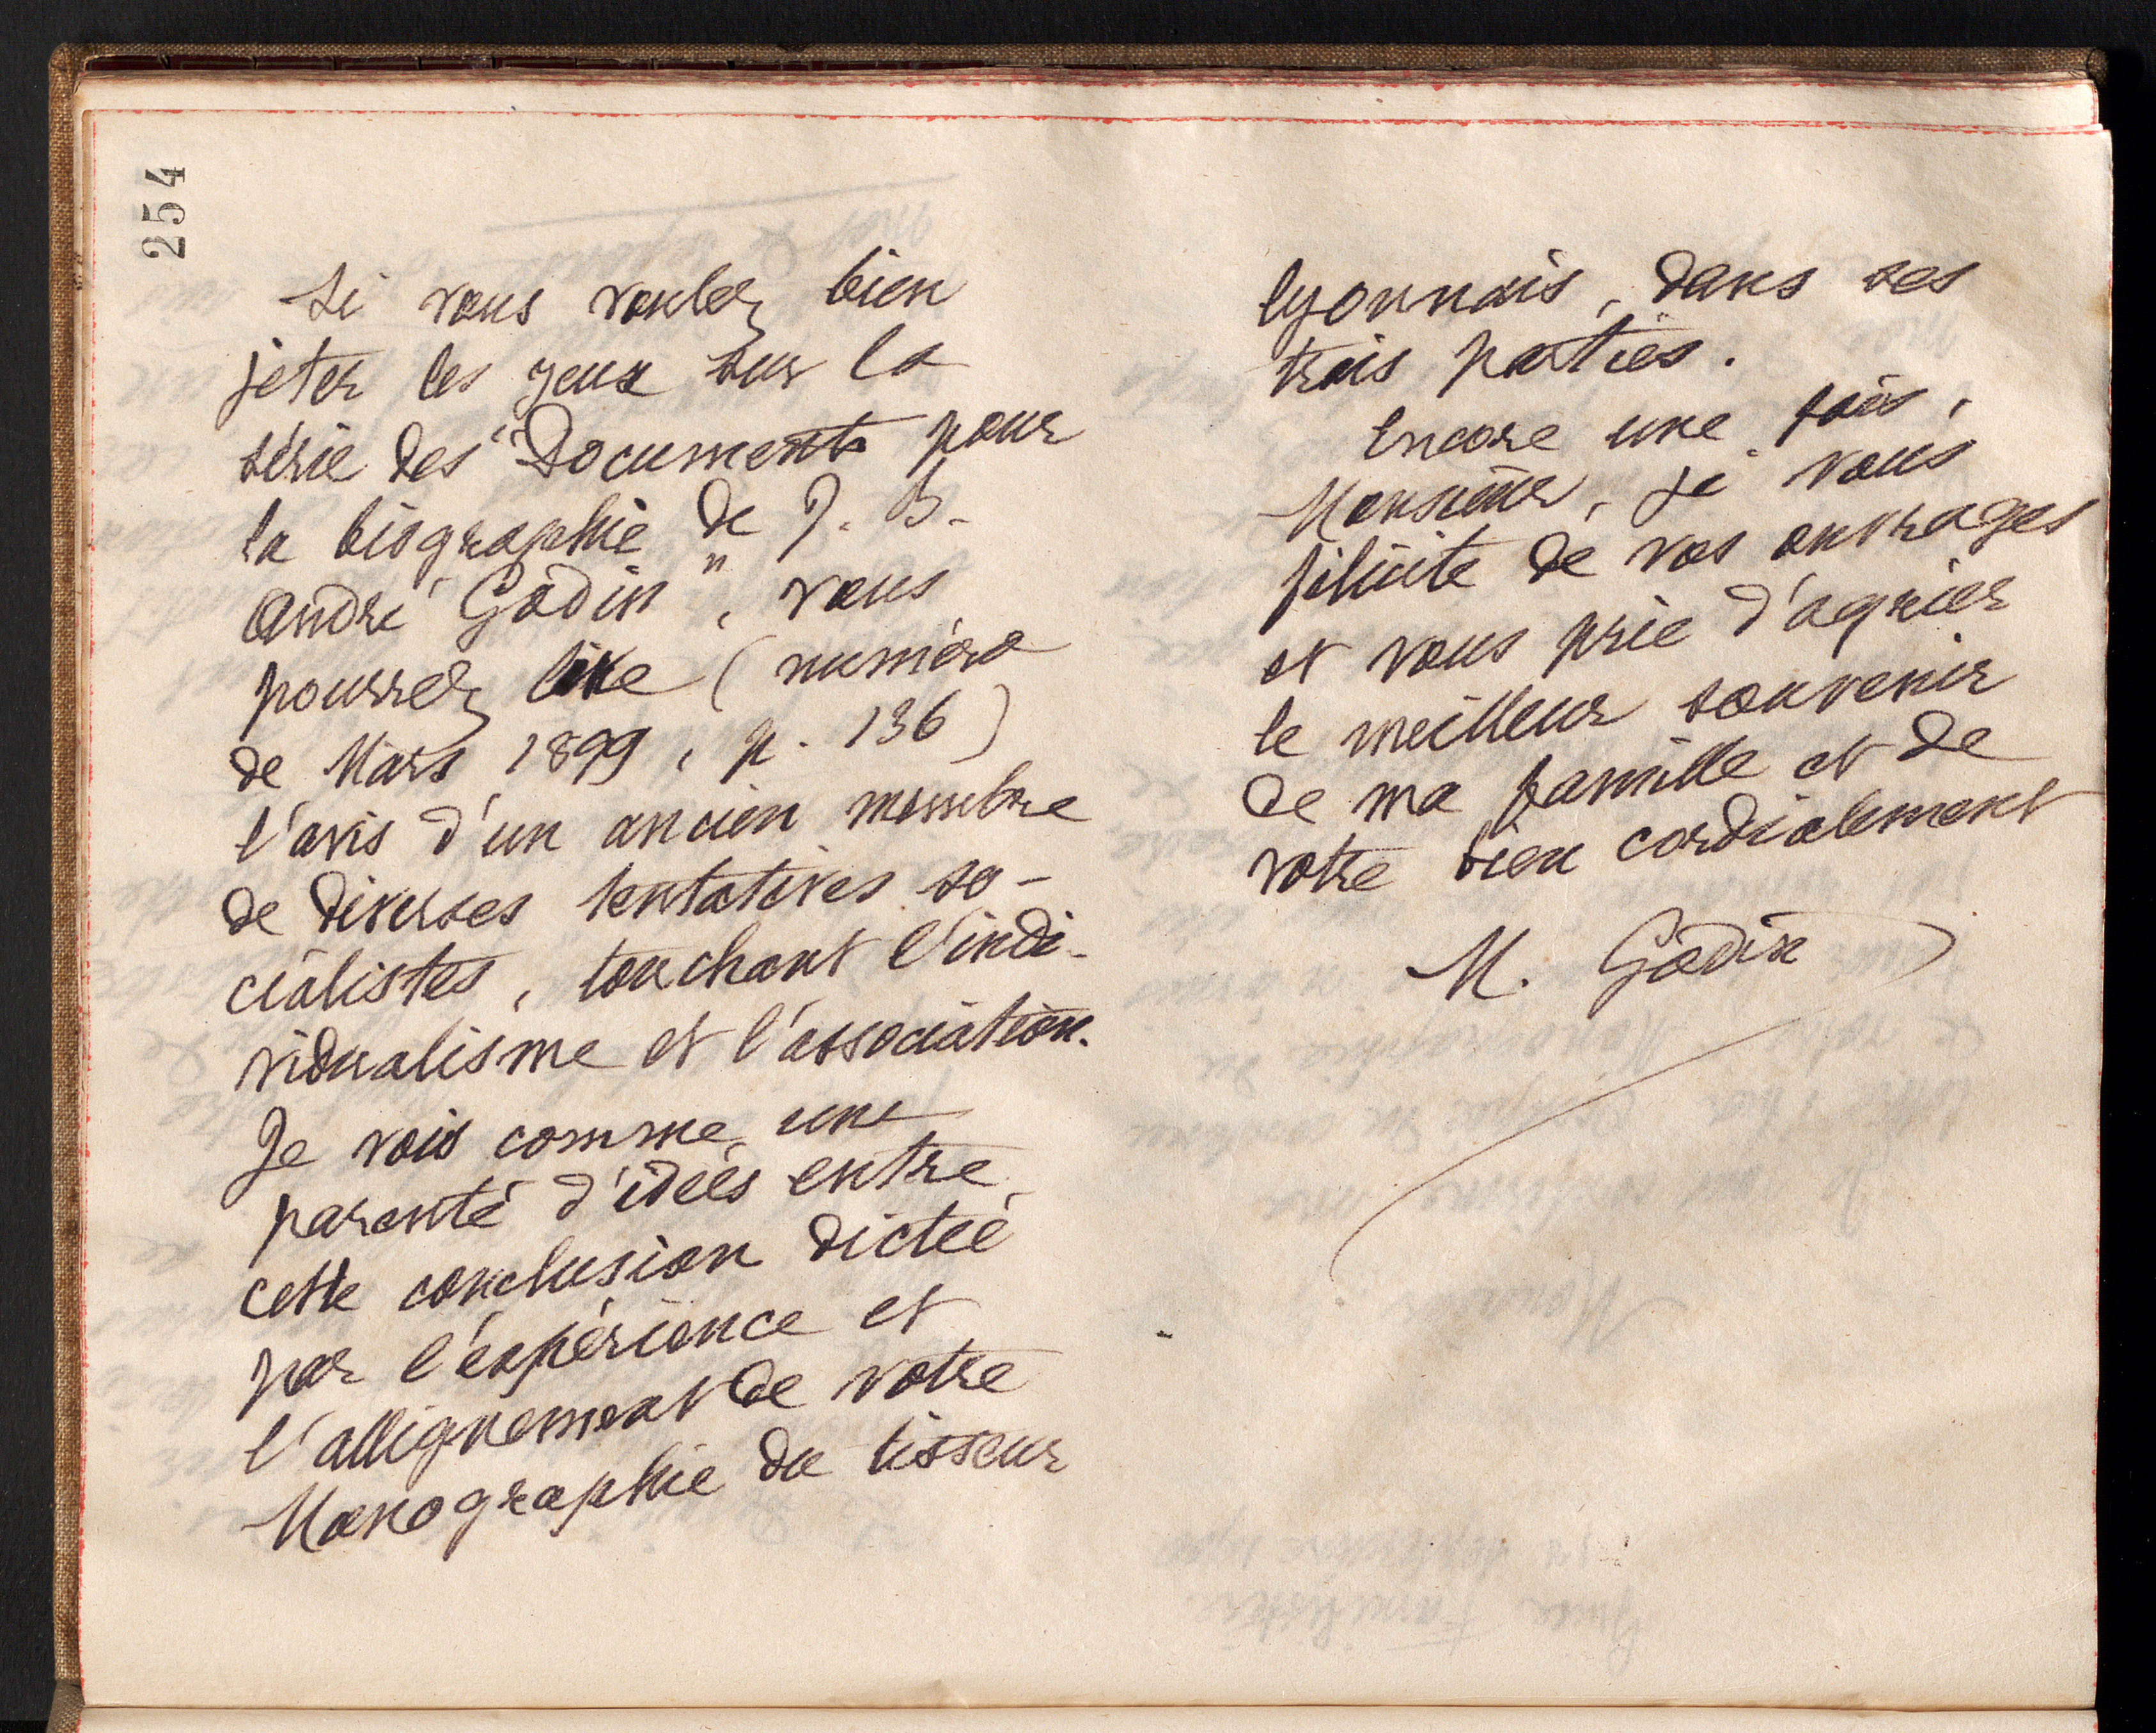 254
Si vous voulez bien
jeter les yeux sur la
série des "Documents pour
la biographie de J. B.
André Godin", vous
pourrez lire (numéro
de Mars 1899, p. 136)
l'avis d'un ancien membre
de diverses tentatives so-
cialistes, touchant l'indi-
vidualisme et l'association.
Je vois comme une
parenté d'idées entre
cette conclusion dictée
par l'expérience et
l'allignement de votre
Monographie du tisseur
lyonnais, dans ses
trois parties.
Encore une fois,
Monsieur, je vous
félicite de vos ouvrages
et vous prie d'agréer
le meilleur souvenir
de ma famille et de
votre bien cordialement
M. Godin